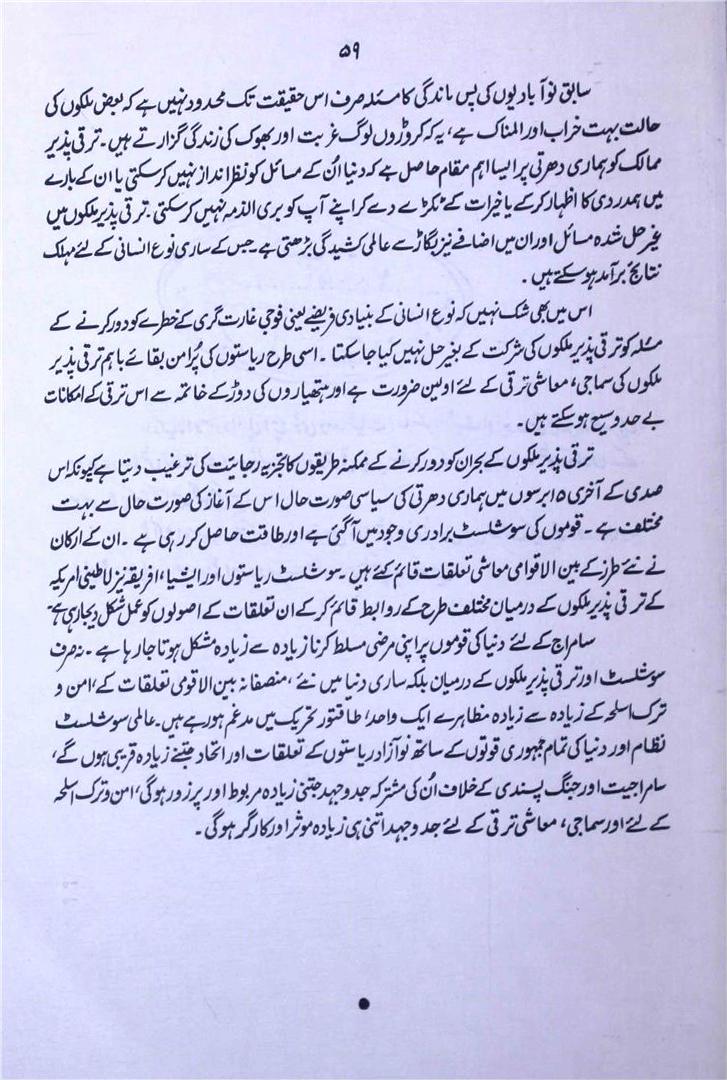 ۵۹
سابق نوآبادیوں کی پس ماندگی کا مسئلہ صرف اس حقیقت تک محدود نہیں ہے کہ بعض ملکوں کی
حالت بہت خراب اور المناک ہے، یہ کہ کروڑوں لوگ غربت اور بھوک کی زندگی گزارتے ہیں۔ ترقی پذیر
ممالک کو ہماری دھرتی پر ایسا اہم مقام حاصل ہے کہ دنیا اُن کے مسائل کو نظر انداز نہیں کر سکتی یا ان کے بارے
میں ہمدردی کا اظہار کر کے یا خیرات کے ٹکڑے دے کر اپنے آپ کو بری الذمہ نہیں کر سکتی۔ ترقی پذیر ملکوں میں
غیر حل شدہ مسائل اور ان میں اضافے نیز بگاڑ سے عالمی کشیدگی بڑھتی ہے۔ جس کے ساری نوع انسانی کے لئے مہلک
نتائج برآمد ہو سکتے ہیں۔
اس میں بھی شک نہیں کہ نوع انسانی کے بنیادی فریضے یعنی فوجی غارت گری کے خطرے کو دور کرنے کے
مسئلہ کو ترقی پذیر ملکوں کی شرکت کے بغیر حل نہیں کیا جا سکتا۔ اسی طرح ریاستوں کی پُرامن بقائے باہم ترقی پذیر
ملکوں کی سماجی، معاشی ترقی کے لئے اولین ضرورت ہے اور ہتھیاروں کی دوڑ کے خاتمہ سے اس ترقی کے امکانات
بے حد وسیع ہو سکتے ہیں۔
ترقی پذیر ملکوں کے بحران کو دور کرنے کے ممکنہ طریقوں کا تجزیہ رجائیت کی ترغیب دیتا ہے کیونکہ اس
صدی کے آخری ۱۵ برسوں میں ہماری دھرتی کی سیاسی صورت حال اس کے آغاز کی صورت حال سے بہت
مختلف ہے۔ قوموں کی سوشلسٹ برادری وجود میں آگئی ہے اور طاقت حاصل کر رہی ہے۔ ان کے ارکان
نے نئے طرز کے بین الاقوامی معاشی تعلقات قائم کئے ہیں۔ سوشلسٹ ریاستوں اور ایشیا، افریقہ نیز لاطینی امریکہ
کے ترقی پذیر ملکوں کے درمیان مختلف طرح کے روابط قائم کر کے ان تعلقات کے اصولوں کو عمل شکل دیجا رہی ہے۔
سامراج کے لئے دنیا کی قوموں پر اپنی مرضی مسلط کرنا زیادہ سے زیادہ مشکل ہوتا جا رہا ہے۔ نہ صرف
سوشلسٹ اور ترقی پذیر ملکوں کے درمیان بلکہ ساری دنیا میں نئے، منصفانہ بین الاقومی تعلقات کے، امن و
ترک اسلحہ کے زیادہ سے زیادہ مظاہرے ایک واحد، طاقتور تحریک میں مدغم ہو رہے ہیں۔ عالمی سوشلسٹ
نظام اور دنیا کی تمام جمہوری قوتوں کے ساتھ نوآزاد ریاستوں کے تعلقات اور اتحاد جتنے زیادہ قریبی ہوں گے،
سامراجیت اور جنگ پسندی کے خلاف اُن کی مشترکہ جدوجہد جتنی زیادہ مربوط اور پرزور ہوگی، امن و ترک اسلحہ
کے لئے اور سماجی، معاشی ترقی کے لئے جدوجہد اتنی ہی زیادہ موثر اور کارگر ہوگی۔